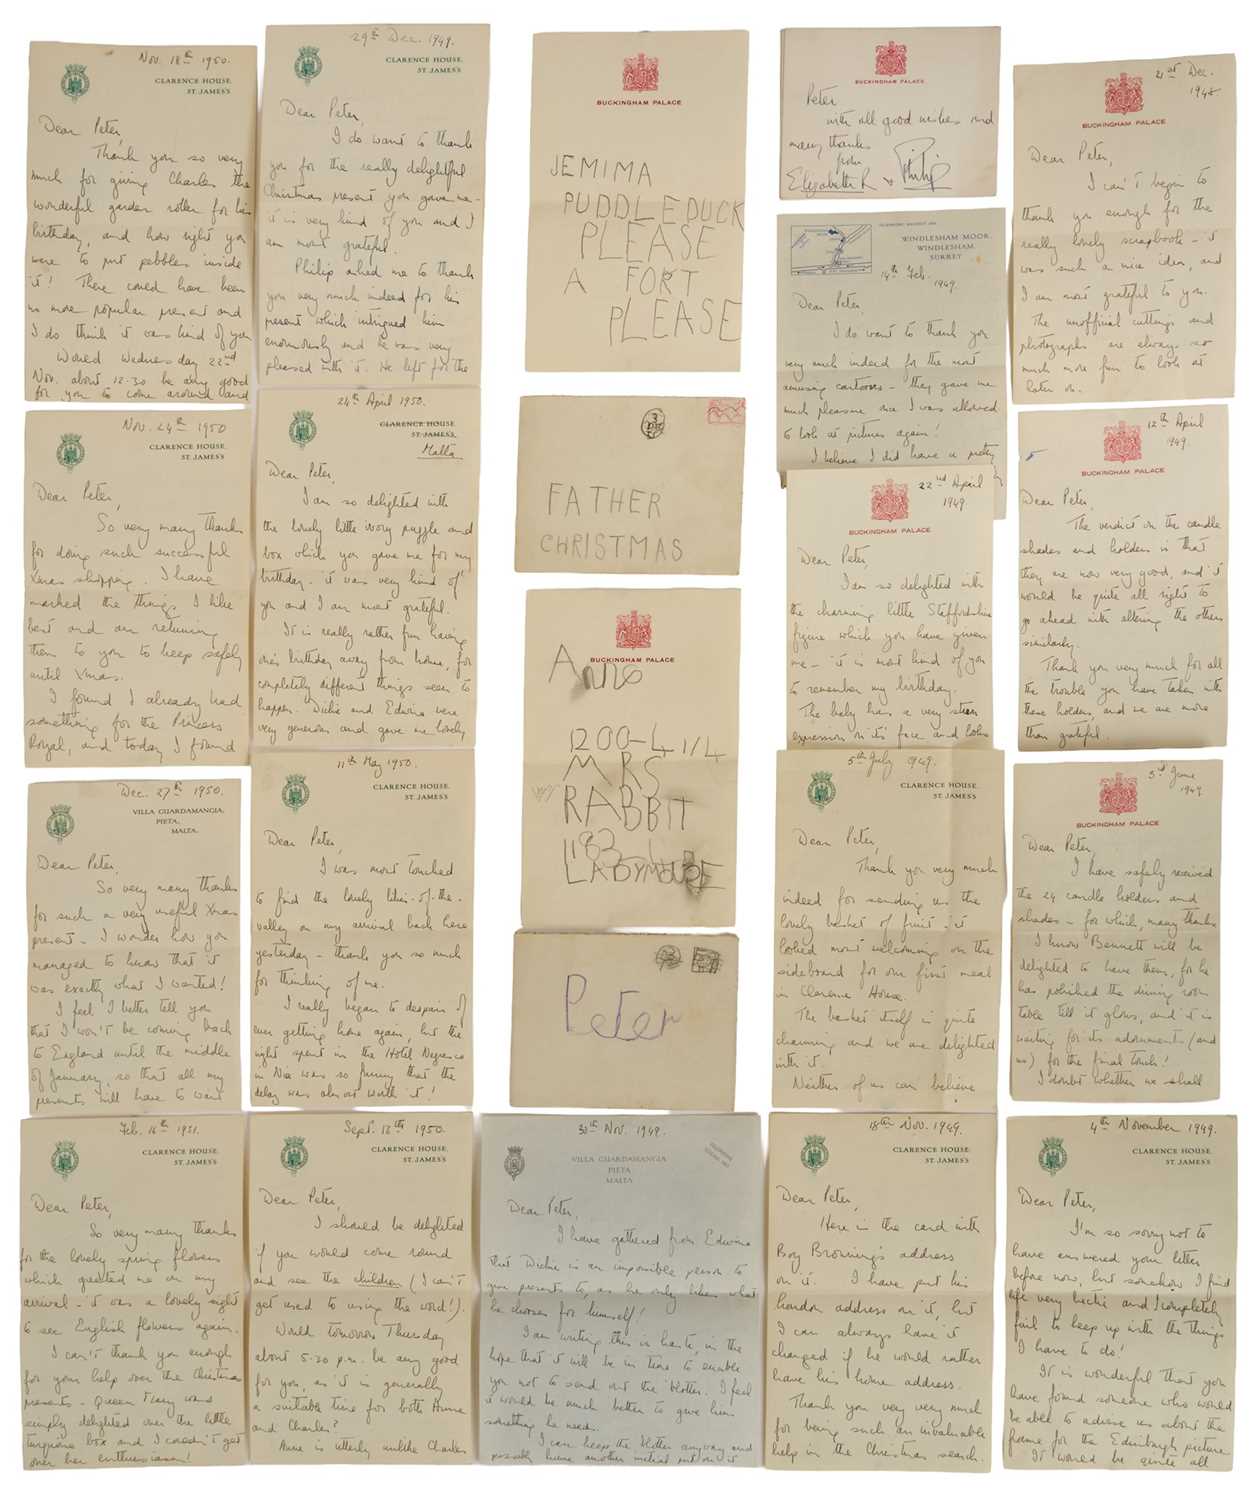 Nov. 18th 1950.
CLARENCE HOUSE.
ST. JAMES'S
Dear Peter,
Thank you so very
much for giving Charles the
wonderful garden roller for his
birthday, and how right you
were to put pebbles inside
it! There could have been
no more popular present and
I do think it was kind of you
Would Wednesday 22nd
Nov. about 12.30 be any good
for you to come around and
Nov. 24th 1950
CLARENCE HOUSE.
ST. JAMES'S
Dear Peter,
So very many thanks
for doing such successful
Xmas shopping. I have
marked the things I like
best and am returning
them to you to keep safely
until Xmas.
I found I already had
something for the Princess
Royal, and today I found
Dec. 27th 1950.
VILLA GUARDAMANGIA,
PIETA,
MALTA.
Dear Peter,
So very many thanks
for such a very useful Xmas
present - I wonder how you
managed to know that it
was exactly what I wanted!
I feel I better tell you
that I won't be coming back
to England until the middle
of January, so that all my
presents will have to wait
Feb. 16th 1951.
CLARENCE HOUSE.
ST. JAMES'S
Dear Peter,
So very many thanks
for the lovely spring flowers
which greeted me on my
arrival - it was a lovely sight
to see English flowers again.
I can't thank you enough
for your help over the Christmas
presents - Queen Mary was
simply delighted over the little
turquoise box and I couldn't get
over her enthusiasm!
29th Dec. 1949.
CLARENCE HOUSE.
ST. JAMES'S
Dear Peter,
I do want to thank
you for the really delightful
Christmas present you gave me -
it is very kind of you and I
am most grateful.
Philip asked me to thank
you very much indeed for his
present which intrigued him
enormously and he was very
pleased with it. He left for the
24th April 1950.
CLARENCE HOUSE.
ST. JAMES'S.
Malta
Dear Peter,
I am so delighted with
the lovely little ivory puzzle and
box which you gave me for my
birthday. it was very kind of
you and I am most grateful.
It is really rather fun having
one's birthday away from home, for
completely different things seem to
happen. Dickie and Edwina were
very generous and gave me lovely
11th May 1950.
CLARENCE HOUSE.
ST. JAMES'S
Dear Peter,
I was most touched
to find the lovely lilies-of-the-
valley on my arrival back here
yesterday - thank you so much
for thinking of me.
I really began to despair of
ever getting home again, but the
night spent in the Hotel Negresco
in Nice was so funny that the
delay was almost worth it!
Sept. 13th 1950.
CLARENCE HOUSE.
ST. JAMES'S
Dear Peter,
I should be delighted
if you would come round
and see the children (I can't
get used to using the word!).
Would tomorrow Thursday
about 5.20 p.m. be any good
for you, as it is generally
a suitable time for both Anne
and Charles?
Anne is utterly unlike Charles
BUCKINGHAM PALACE
JEMIMA
PUDDLEDUCK
PLEASE
A FORT
PLEASE
FATHER
CHRISTMAS
BUCKINGHAM PALACE
Anne
1200-4 1/4
MRS
RABBIT
1183
LADYMOUSE
Peter
30th Nov. 1949.
VILLA GUARDAMANGIA
PIETA
MALTA
Dear Peter,
I have gathered from Edwina
that Dickie is an impossible person to
give presents to, as he only likes what
he chooses for himself!
I am writing this in haste, in the
hope that it will be in time to enable
you not to send out the blotter. I feel
it would be much better to give him
something he needs.
I can keep the blotter anyway and
possibly have another initial put on it
BUCKINGHAM PALACE
Peter
with all good wishes and
many thanks
from
Elizabeth R & Philip
WINDLESHAM MOOR,
WINDLESHAM,
SURREY
14th Feb. 1949.
Dear Peter,
I do want to thank you
very much indeed for the most
amusing cartoons - they gave me
much pleasure once I was allowed
to look at pictures again!
I believe I did have a pretty
22nd April
1949.
BUCKINGHAM PALACE
Dear Peter,
I am so delighted with
the charming little Staffordshire
figure which you have given
me - it is most kind of you
to remember my birthday.
The baby has a very stern
expression on its face and looks
5th July 1949.
CLARENCE HOUSE.
ST. JAMES'S
Dear Peter,
Thank you very much
indeed for sending us the
lovely basket of fruit - it
looked most welcoming on the
sideboard for our first meal
in Clarence House.
The basket itself is quite
charming and we are delighted
with it.
Neither of us can believe
18th Nov. 1949.
CLARENCE HOUSE.
ST. JAMES'S
Dear Peter,
Here in the card with
Boy Browning's address
on it. I have put his
London address on it, but
I can always have it
changed if he would rather
have his home address.
Thank you very very much
for being such an invaluable
help in the Christmas search.
21st Dec.
1948
BUCKINGHAM PALACE
Dear Peter,
I can't begin to
thank you enough for the
really lovely scrapbook - it
was such a nice idea, and
I am most grateful to you.
The unofficial cuttings and
photographs are always so
much more fun to look at
later on.
12th April
1949.
BUCKINGHAM PALACE
Dear Peter,
The verdict on the candle
shades and holders is that
they are now very good, and it
would be quite all right to
go ahead with altering the others
similarly.
Thank you very much for all
the trouble you have taken with
these holders, and we are more
than grateful.
3rd June
1949
BUCKINGHAM PALACE
Dear Peter,
I have safely received
the 24 candle holders and
shades - for which, many thanks
I know Bennett will be
delighted to have them, for he
has polished the dining room
table till it glows, and it is
waiting for its adornments (and
us) for the final touch!
I doubt whether we shall
4th November 1949.
CLARENCE HOUSE.
ST. JAMES'S
Dear Peter,
I'm so sorry not to
have answered your letter
before now, but somehow I find
life very hectic and I completely
fail to keep up with the things
I have to do!
It is wonderful that you
have found someone who would
be able to advise us about the
frame for the Edinburgh picture
It would be quite all